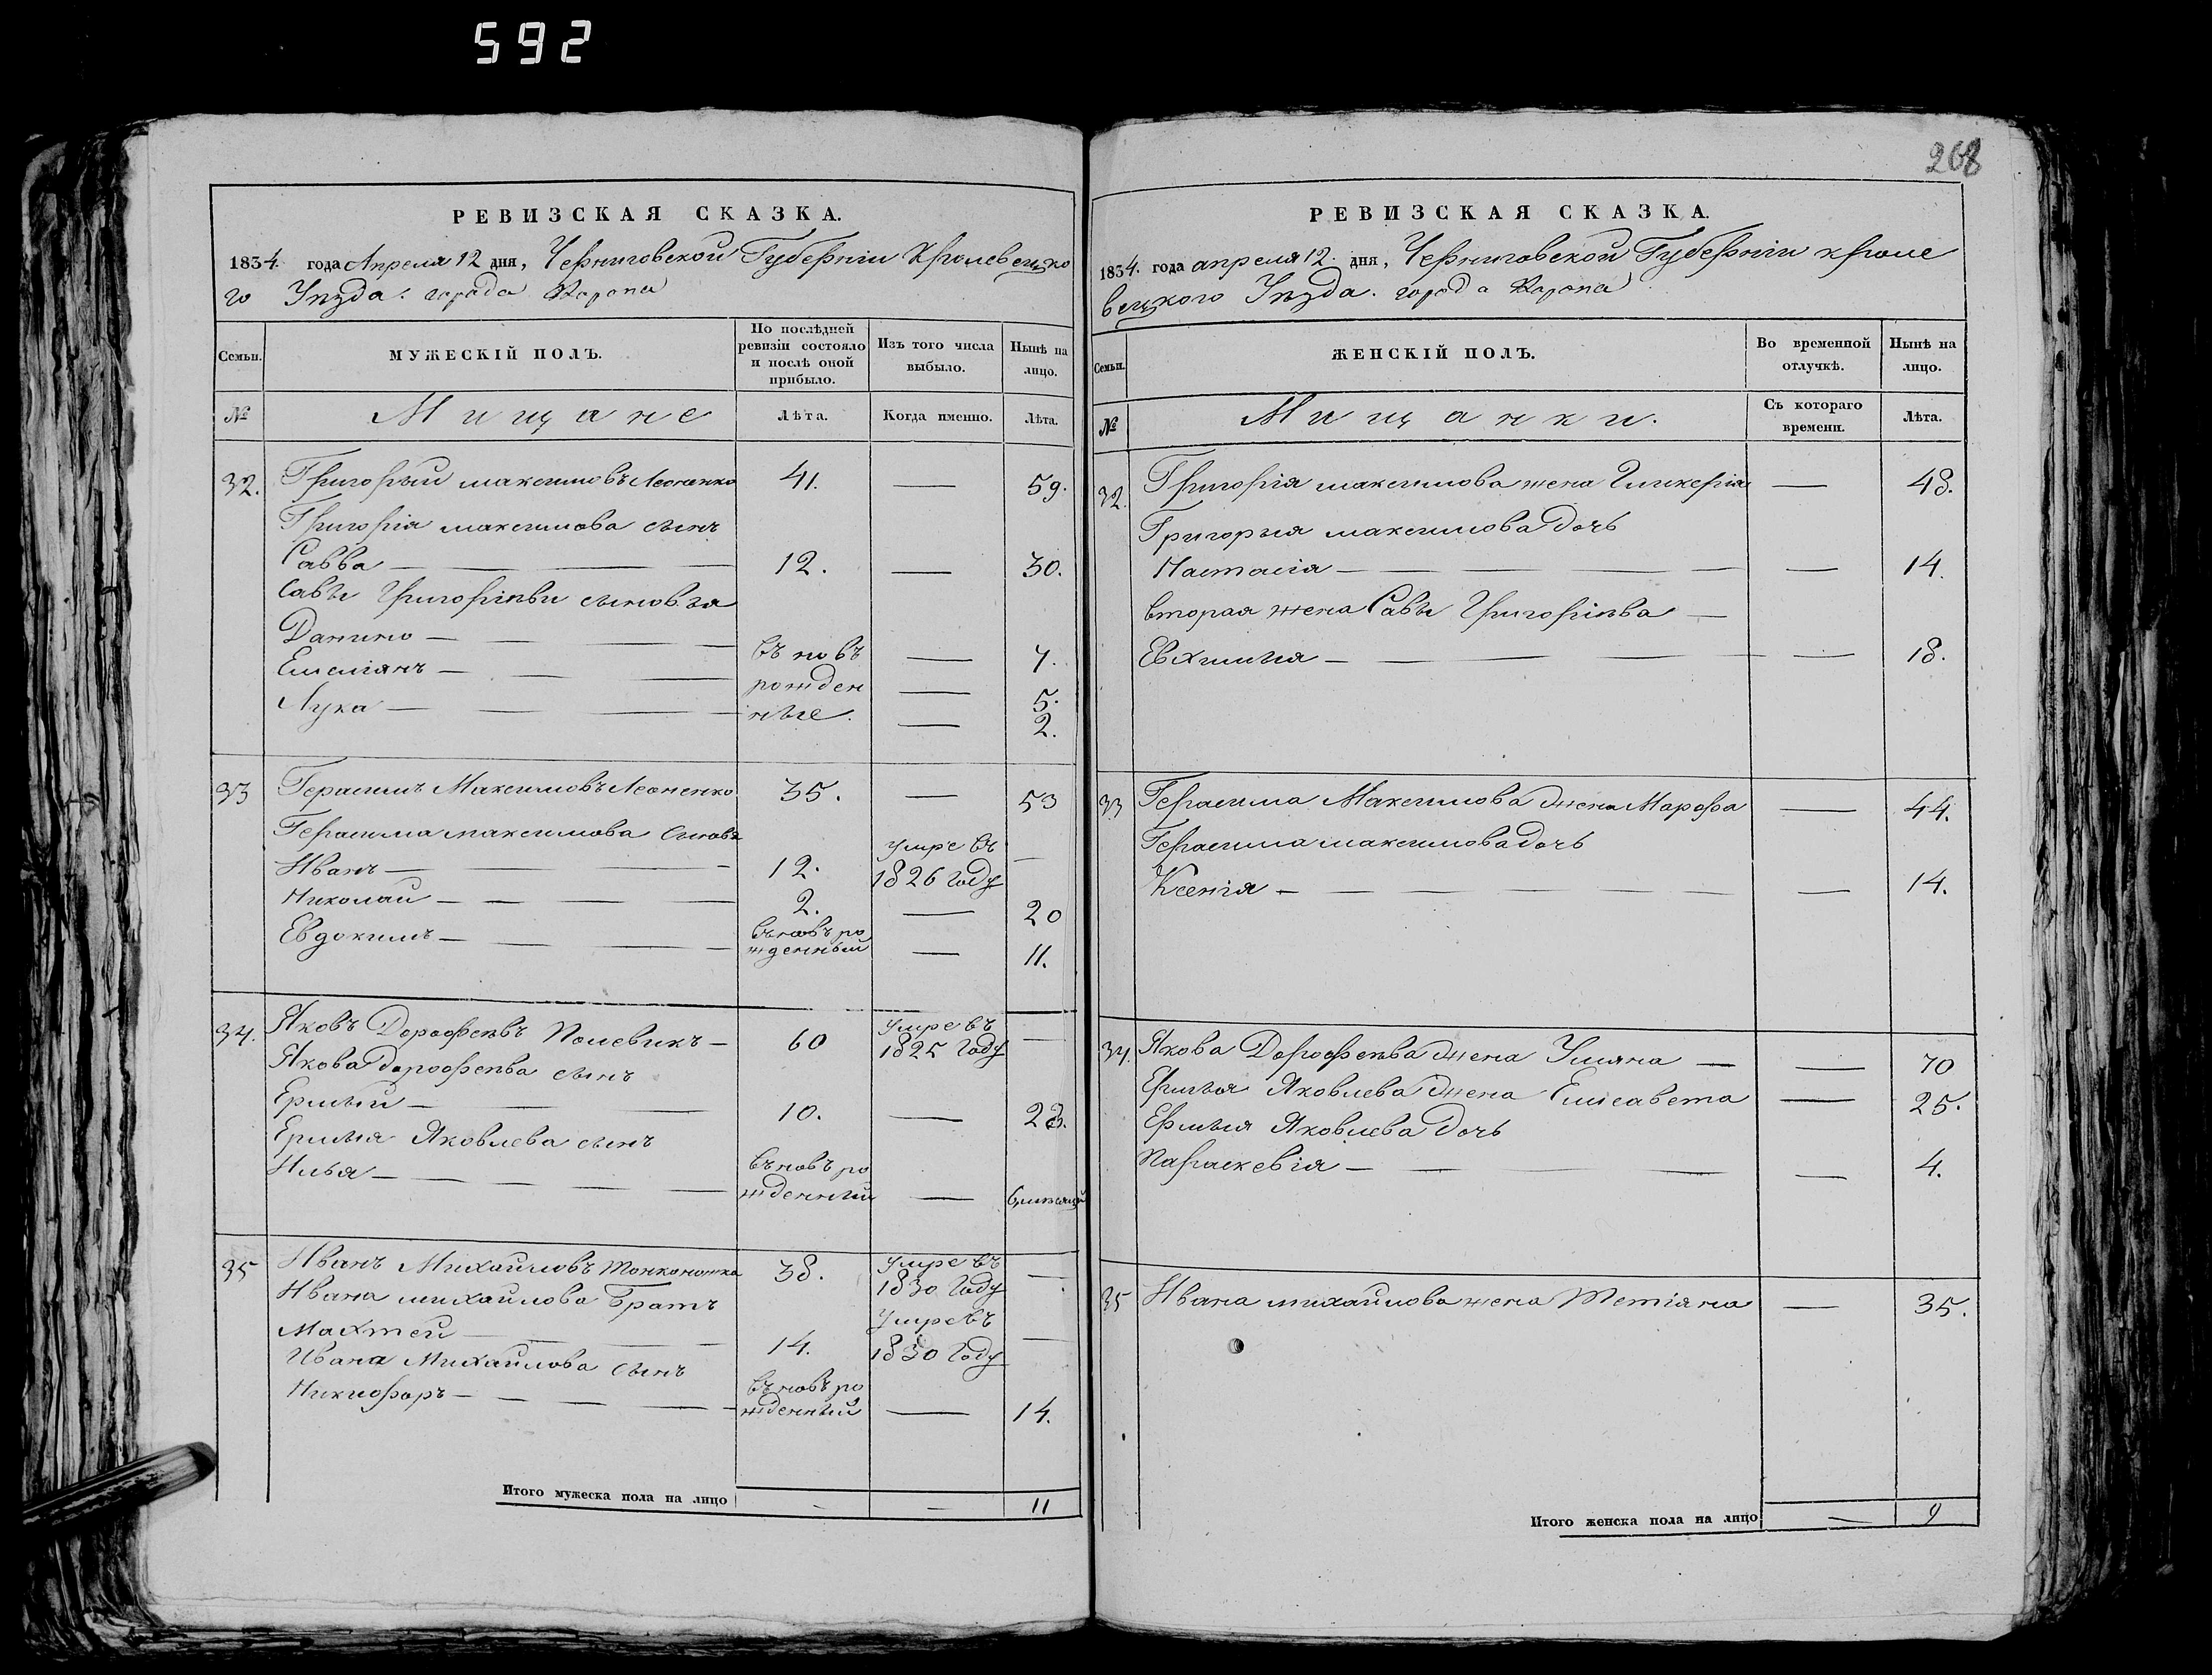 592
268
РЕВИЗСКАЯ СКАЗКА.
1834. года Апреля 12 дня, Черниговской Губерніи Кролевецко
го Уѣзда. города Коропа
Семьи. МУЖЕСКІЙ ПОЛЪ. По послѣдней ревизіи состояло и послѣ оной прибыло. Изъ того числа выбыло. Нынѣ на лицо.
№ Мищане Лѣта. Когда именно. Лѣта.
32. Григорый максимовъ Леоненко 41. — 59.
Григорія максимова сынъ
Савва — 12. — 30.
Савы Григоріѣви сыновья
Данило — въ новъ — 7.
Емелiянъ — рожден — 5.
Лука — ные. — 2.
33 Герасимъ Максимовъ Леоненко 35. — 53
Герасима максимова сыновя
Иванъ — 12. умре въ 1826 году —
Николай — 2. — 20
Евдокимъ — въновъ ро жденный — 11.
34. Яковъ Дорофѣевъ Полевикъ — 60 умре въ 1825 году —
Якова Дорофѣева сынъ
Ермый — 10. — 28.
Ермыя Яковлева сынъ
Илья — въновъ ро жденный —
35 Иванъ Михайловъ Тонконожка 38. умре въ 1830 году —
Ивана михайлова братъ
Махтей — 14. умре въ 1830 году —
Ивана Михайлова сынъ
Никифоръ — въновъ ро жденный — 14.
Итого мужеска пола на лицо — — 11
РЕВИЗСКАЯ СКАЗКА.
1834. года апреля 12. дня, Черниговской Губерніи кроле
вецкого Уѣзда. города Коропа
Семьи. ЖЕНСКІЙ ПОЛЪ. Во временной отлучкѣ. Нынѣ на лицо.
№ Мищанки. Съ котораго времени. Лѣта.
32. Григорія максимова жена Гликерія — 48.
Григорыя максимова дочь
Настасія — — 14.
вторая жена Савы Григоріѣва —
Евхимыя — — 18.
33 Герасима Максимова жена Марфа — 44.
Герасима максимова дочь
Ксенія — — 14.
34. Якова Дорофѣева жена Уляна — — 70
Ермыя Яковлева жена Елисавета — 25.
Ермыя Яковлева дочь
Параскевія — — 4.
35 Ивана михайлова жена Тетіяна — 35.
Итого женска пола на лицо — 9